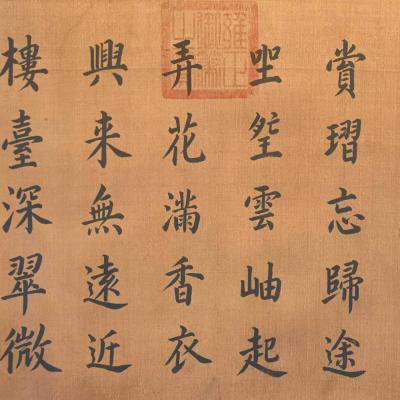 賞忘歸途
雲岫起
弄花滿香衣
興来無遠近
樓臺深翠微
雍正